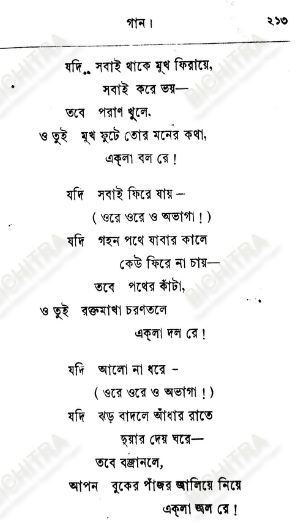 গান।
২১৩
যদি সবাই থাকে মুখ ফিরায়ে,
সবাই করে ভয়—
তবে পরাণ খুলে,
ও তুই মুখ ফুটে তোর মনের কথা,
একলা বল রে!
যদি সবাই ফিরে যায় –
( ওরে ওরে ও অভাগা! )
যদি গহন পথে যাবার কালে
কেউ ফিরে না চায়—
তবে পথের কাঁটা,
ও তুই রক্তমাখা চরণতলে
একলা দল রে!
যদি আলো না ধরে –
( ওরে ওরে ও অভাগা! )
যদি ঝড় বাদলে আঁধার রাতে
দুয়ার দেয় ঘরে—
তবে বজ্রানলে,
আপন বুকের পাঁজর জালিয়ে নিয়ে
একলা জল রে!
BICHITRA
BICHITRA
BICHITRA